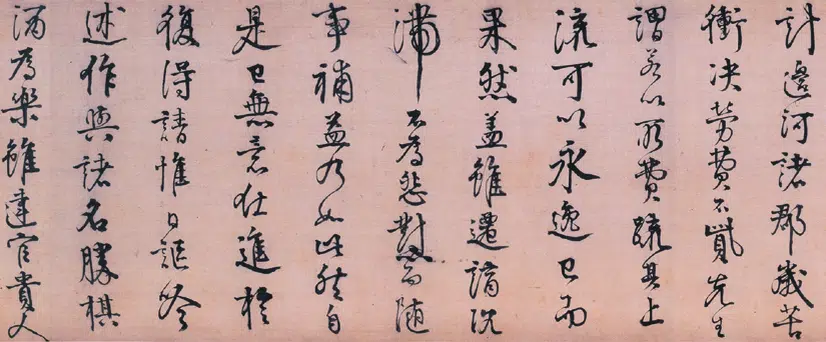 計邊河諸郡歲苦
衝决勞費不貲先生
謂若以所費疏其上
流可以永逸已而
果然蓋雖遷謫沉
滯不為悲懟而隨
事補益乃如此然自
是已無意仕進於
復得請惟日謳吟
述作與諸名勝棋
酒為樂雖達官貴人